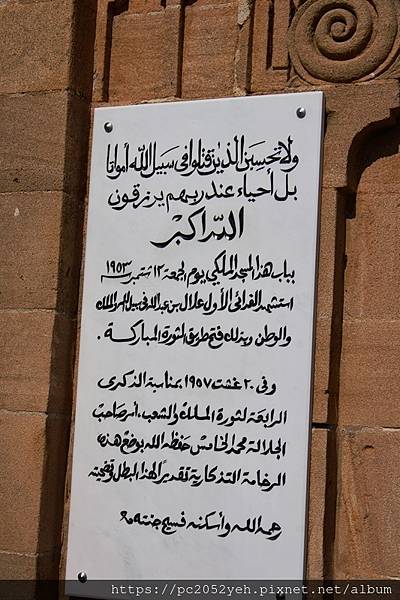 ولا تحسبن الذين قتلوا في سبيل الله أمواتا
بل أحياء عند ربهم يرزقون
الله أكبر
بباب هذا المسجد الملكي يوم الجمعة ١٢ شتنبر ١٩٥٣
استشهد الفدائي الأول علال بن عبد الله في سبيل الله والملك
والوطن وبذلك فتح طريق الثورة المباركة .
وفي ٢٠ غشت ١٩٥٧ بمناسبة الذكرى
الرابعة لثورة الملك والشعب، أمر صاحب
الجلالة محمد الخامس حفظه الله بوضع هذه
الرخامة التذكارية تقديرا لهذا البطل وتضحيته
رحمه الله وأسكنه فسيح جنته
https://pc2052yeh.pixnet.net/album